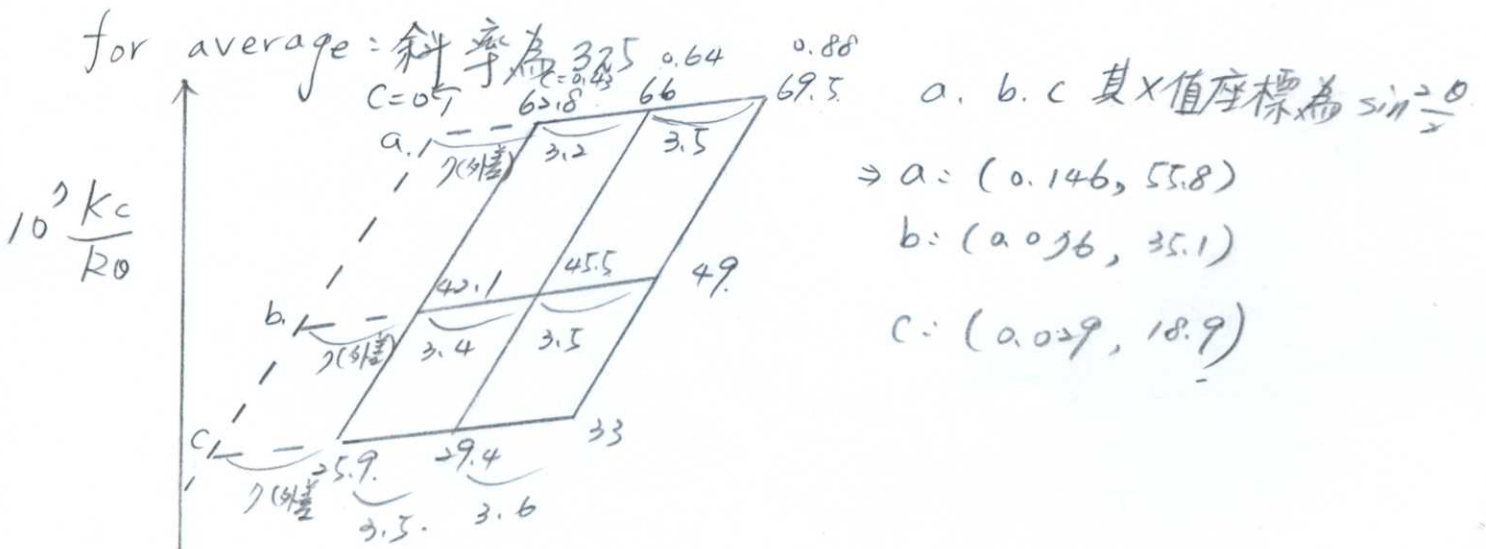 for average : 斜率為 325
0.64
0.88
C=0
C=0.43
62.8
66
69.5
a.
7(外差)
3.2
3.5
10⁷ Kc/Rθ
42.1
45.5
49.
b.
7(外差)
3.4
3.5
c
7(外差
25.9.
29.4
33
3.5.
3.6
a. b. c 其X值座標為 sin²θ/2
⇒ a: (0.146, 55.8)
b: (0.086, 35.1)
c: (0.029, 18.9)